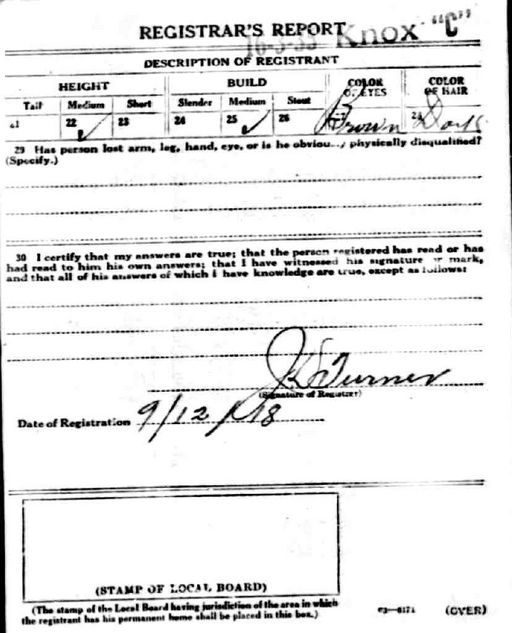 REGISTRAR'S REPORT
Knox "C"
DESCRIPTION OF REGISTRANT
HEIGHT BUILD COLOR OF EYES COLOR OF HAIR
Tall Medium Short Slender Medium Stout
21 22 ✓ 23 24 25 ✓ 26 Brown Dark
29 Has person lost arm, leg, hand, eye, or is he obviously physically disqualified?
(Specify.)
30 I certify that my answers are true; that the person registered has read or has
had read to him his own answers; that I have witnessed his signature or mark,
and that all of his answers of which I have knowledge are true, except as follows:
Turner
(Signature of Registrar)
Date of Registration 9/12/18
(STAMP OF LOCAL BOARD)
(The stamp of the Local Board having jurisdiction of the area in which
the registrant has his permanent home shall be placed in this box.)
03—6171 (OVER)